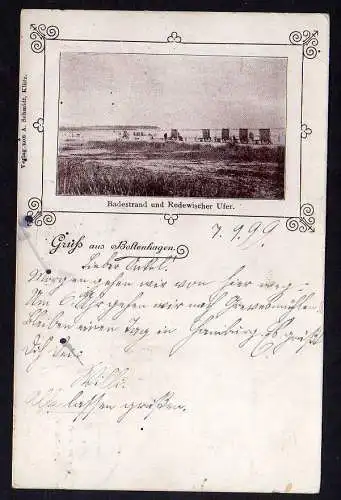 Verlag von A. Schmidt, Klütz.
Badestrand und Redewischer Ufer.
Gruß aus Boltenhagen.
7.9.99
Lieber Onkel!
Morgen gehen wir von hier weg.
Um 6 Uhr gehen wir nach Grevesmühlen
bleiben einen Tag in Hamburg. Es grüßt
Dich Dein
Willi.
Alle lassen grüßen.